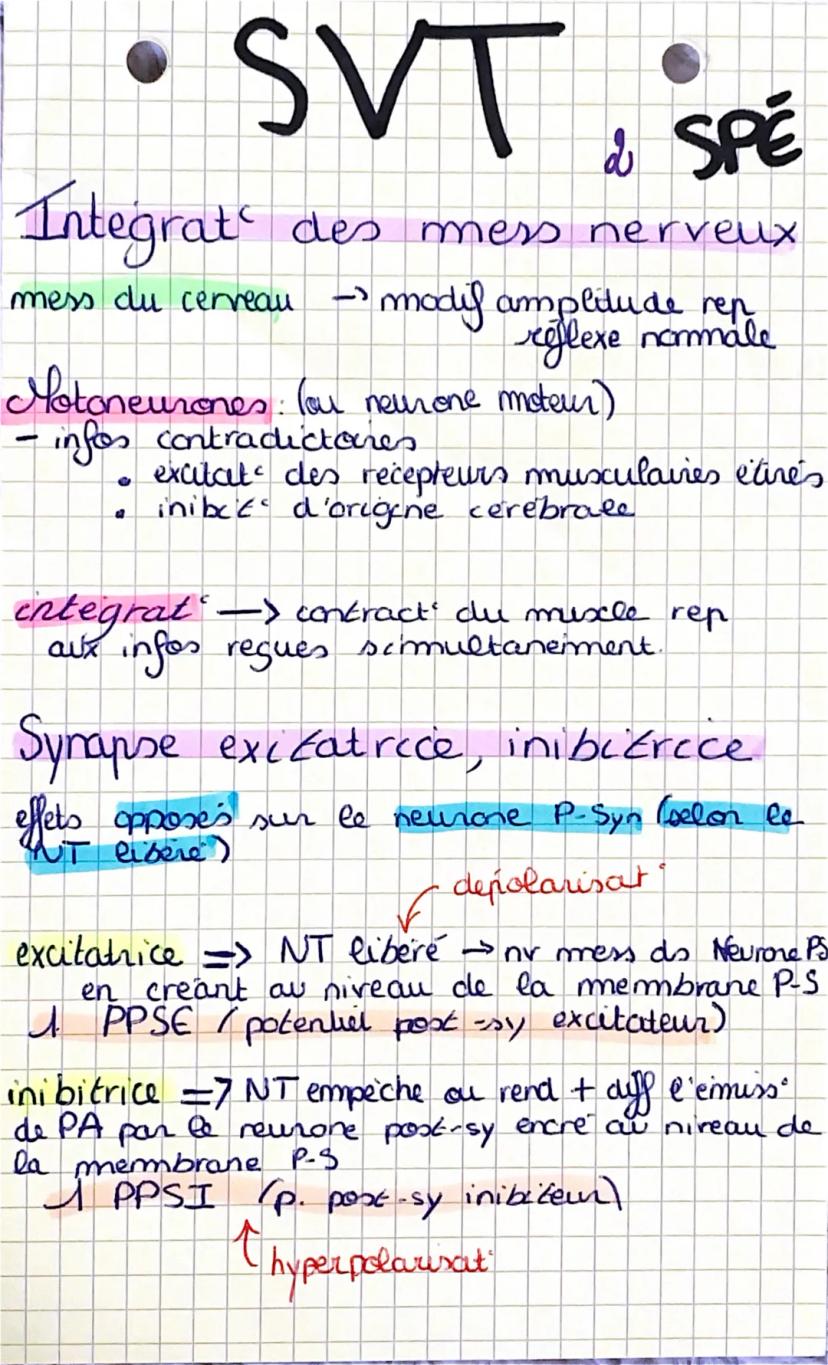 SVT
2 SPÉ
Intégratᶜ des mess nerveux
mess du cerveau → modif amplitude rep
réflexe normale
Motoneurones : (ou neurone moteur)
- infos contradictoires
• excitatᶜ des récepteurs musculaires étirés
• inibitᶜ d'origine cérébrale
intégratᶜ → contractᶜ du muscle rep
aux infos reçues simultanément.
Synapse excitatrice, inibitrice
effets opposés sur le neurone P-Syn (selon le
NT libéré)
dépolarisatᶜ
excitatrice => NT libéré → nv mess ds Neurone PS
en créant au niveau de la membrane P-S
1 PPSE (potentiel post-sy excitateur)
inibitrice => NT empêche ou rend + diff l'émissᶜ
de PA par le neurone post-sy en cré au niveau de
la membrane P-S
1 PPSI (p. post-sy inibiteur)
hyperpolarisatᶜ